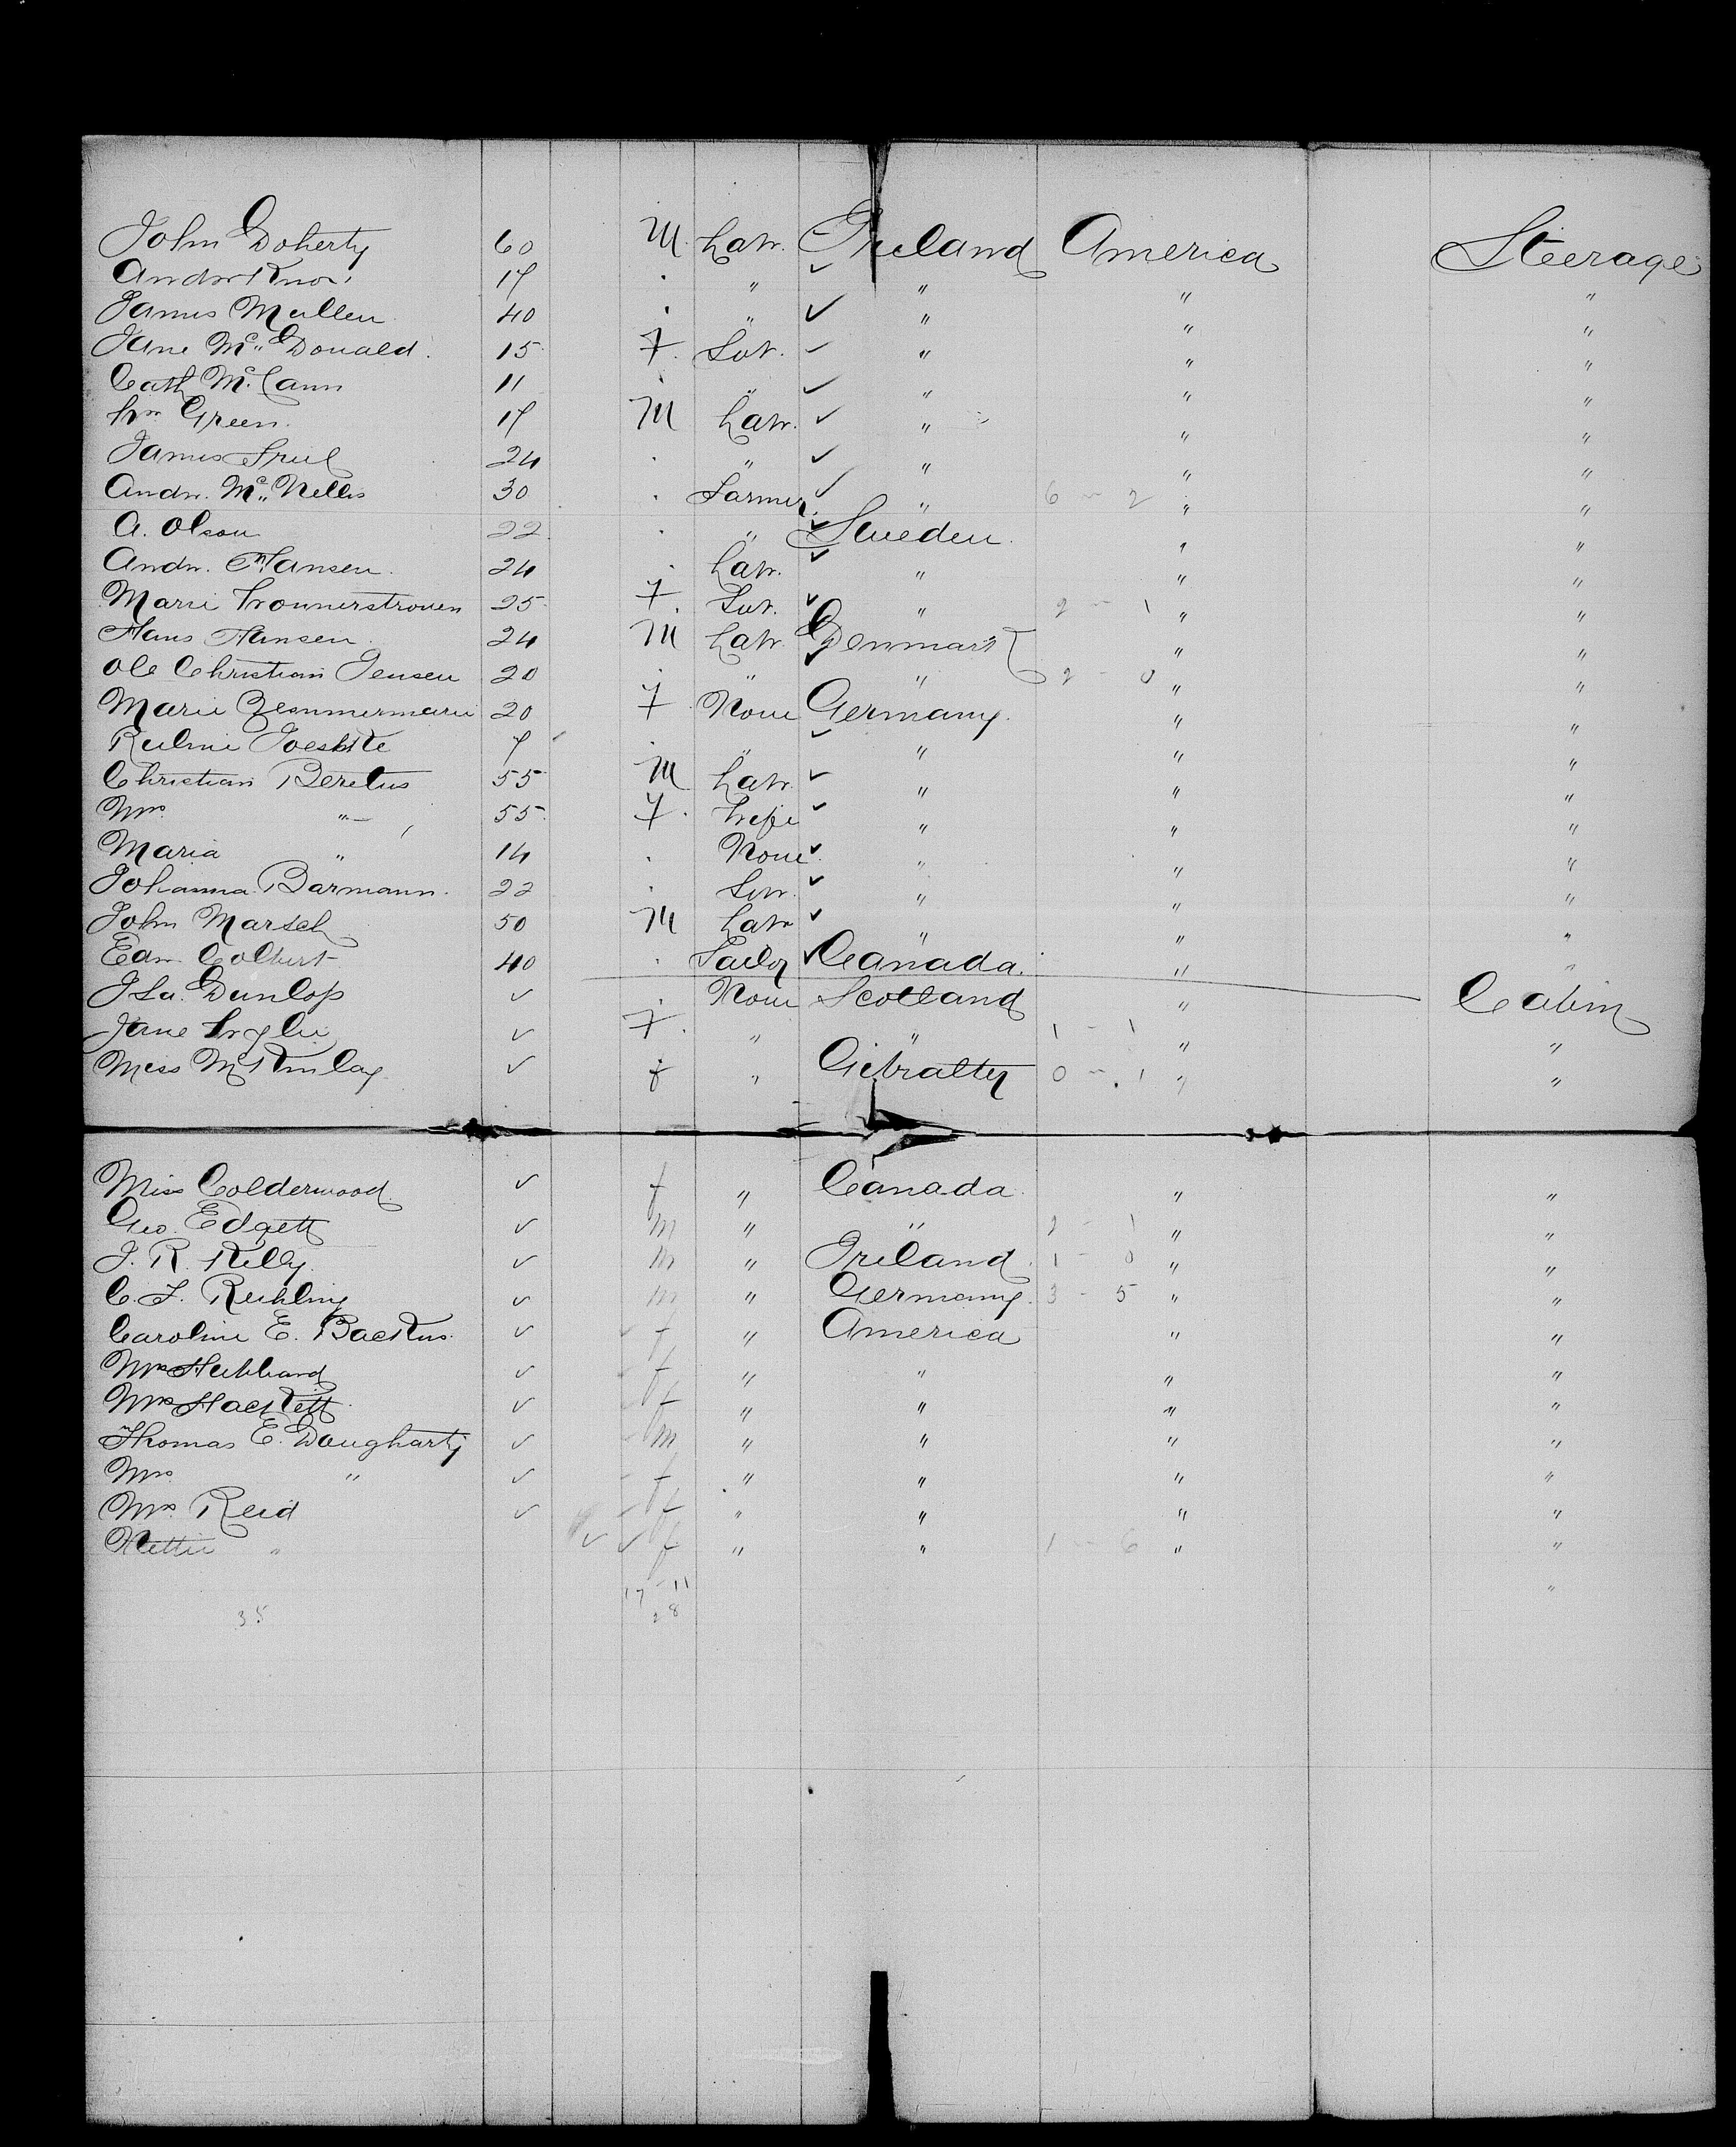 John Doherty 60 M. Labr. Ireland America Steerage
Andw Knox 17 . " ✓ " " "
James Mullen 40 . " ✓ " " "
Jane Mc Donald. 15 F. Svt. ✓ " " "
Cath Mc Cann 11 . " ✓ " " "
Wm Green. 17 M Labr. ✓ " " "
James Friel 24 . " ✓ " " "
Andw. Mc Nelis 30 . Farmer ✓ " 6 - 2 " "
A. Olson 22 . " ✓ Sweden. " "
Andw. Hansen. 24 . Labr. ✓ " " "
Marie 25 F. Svt. ✓ " 2 - 1 " "
Hans Hansen. 24 M Labr. Denmark " "
Ole Christian Jensen 20 . " ✓ " 2 - 0 " "
Marie Zesmmermann 20 F None Germany. " "
7 . " ✓ " " "
Christian Beretus 55 M Labr. ✓ " " "
Mrs. " 55. F. Wife ✓ " " "
Maria " 14 . None ✓ " " "
Johanna Barmann. 22 . Svt. ✓ " " "
John Marsch 50 M Labr ✓ " " "
Edw. Colbert 40 . Tailor ✓ Canada. " "
Dunlop ✓ . None Scotland " Cabin
Jane Wylie ✓ F. " " 1 - 1 " "
Miss McKinlay ✓ f " Gibralter 0 - 1 " "
Miss Colderwood ✓ f " Canada. " "
Geo. Edgett ✓ m " " 2 - 1 " "
J. R. Kelly. ✓ m " Ireland. 1 - 0 " "
C. F. Ruhling ✓ m " Germany. 3 - 5 " "
Caroline E. Backus. ✓ f " America " "
Mrs Hubbard ✓ f " " " "
Mrs Hackett ✓ f " " " "
Thomas E. Dougharty ✓ m " " " "
Mrs. " ✓ f " " " "
Mrs. Reid ✓ f " " " "
Nettie " ✓ ✓ f " " 1 - 6 " "
17 - 11 "
35 28